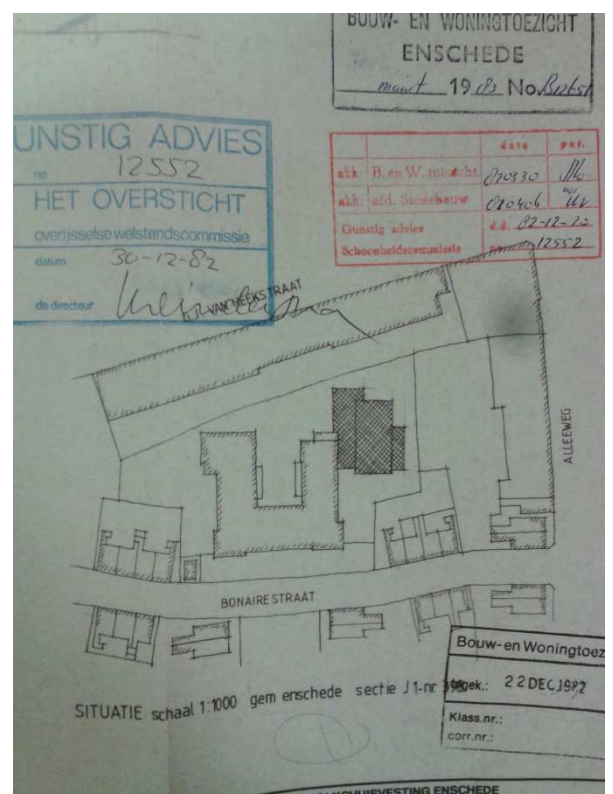 BOUW- EN WONINGTOEZICHT
ENSCHEDE
maart 1983 No
GUNSTIG ADVIES
no 12552
HET OVERSTICHT
overijsselse welstandscommissie
datum 30-12-82
de directeur
data par.
akk. B. en W. toezicht 820330
akk. afd. Stedebouw 820406
Gunstig advies d.d. 82-12-30
Schoonheidscommissie no. 12552
VAN HEEKSTRAAT
ALLEEWEG
BONAIRESTRAAT
SITUATIE schaal 1:1000 gem enschede sectie J 1-nr
Bouw-en Woningtoez
Ingek.: 22 DEC.1982
Klass.nr.:
corr.nr.:
HUISVESTING ENSCHEDE